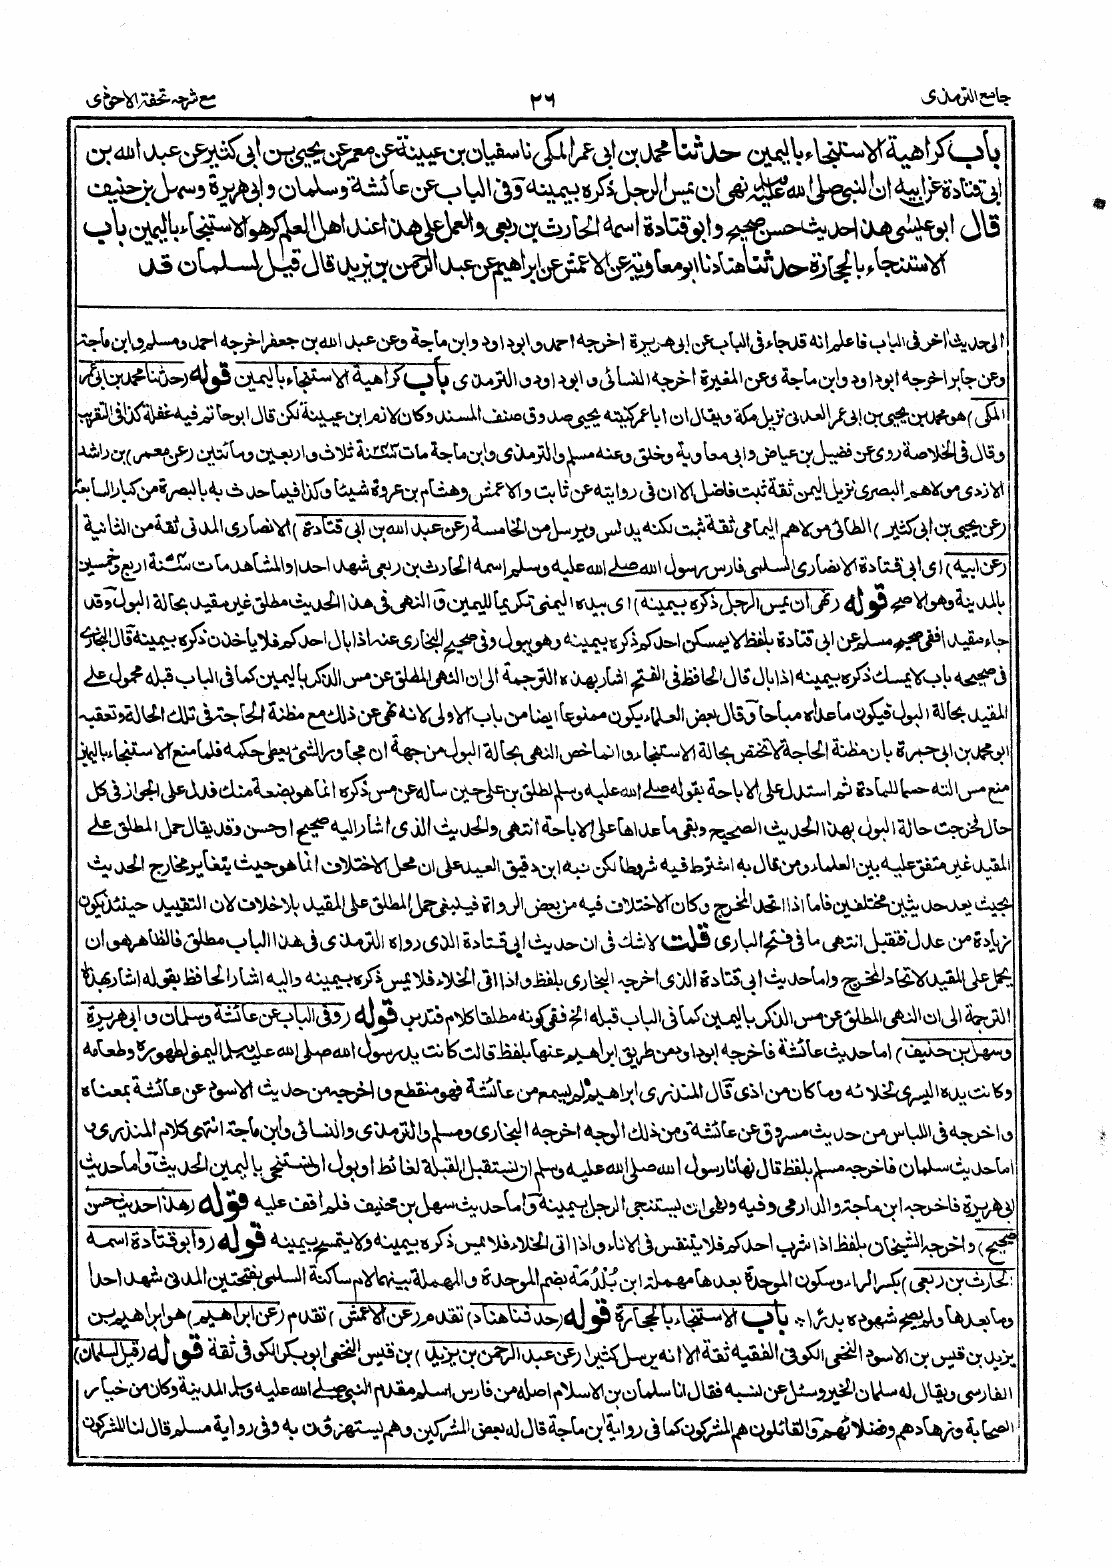 جامع الترمذي
٢٦
مع شرحه تحفة الاحوذي
باب كراهية الاستنجاء باليمين حدثنا محمد بن ابي عمر المكي نا سفيان بن عيينة عن معمر عن يحيى بن ابي كثير عن عبد الله بن
ابي قتادة عن ابيه ان النبي صلى الله عليه وسلم نهى ان يمس الرجل ذكره بيمينه وفي الباب عن عائشة وسلمان وابي هريرة وسهل بن حنيف
قال ابو عيسى هذا حديث حسن صحيح وابو قتادة اسمه الحارث بن ربعي والعمل على هذا عند اهل العلم كرهوا الاستنجاء باليمين باب
الاستنجاء بالحجارة حدثنا هناد نا ابو معاوية عن الاعمش عن ابراهيم عن عبد الرحمن بن يزيد قال قيل لسلمان قد
الى حديث اخر في الباب فاعلم انه قد جاء في الباب عن ابي هريرة اخرجه احمد وابو داود وابن ماجة وعن عبد الله بن جعفر اخرجه احمد ومسلم وابن ماجة
وعن جابر اخرجه ابو داود وابن ماجة وعن المغيرة اخرجه النسائي وابو داود والترمذي باب كراهية الاستنجاء باليمين قوله (حدثنا محمد بن ابي عمر
المكي) هو محمد بن يحيى بن ابي عمر العدني نزيل مكة ويقال ان ابا عمر كنيته يحيى صدوق صنف المسند وكان لازم ابن عيينة لكن قال ابو حاتم فيه غفلة كذا في التقريب
وقال في الخلاصة روى عن فضيل بن عياض وابي معاوية وخلق وعنه مسلم والترمذي وابن ماجة مات سنة ٢٤٣ ثلاث واربعين ومائتين (عن معمر) بن راشد
الازدي مولاهم البصري نزيل اليمن ثقة ثبت فاضل الا ان في روايته عن ثابت والاعمش وهشام بن عروة شيئا وكذا فيما حدث به بالبصرة من كبار السابعة
(عن يحيى بن ابي كثير) الطائي مولاهم اليمامي ثقة ثبت لكنه يدلس ويرسل من الخامسة (عن عبد الله بن ابي قتادة) الانصاري المدني ثقة من الثانية
(عن ابيه) اي ابي قتادة الانصاري السلمي فارس رسول الله صلى الله عليه وسلم اسمه الحارث بن ربعي شهد احدا والمشاهد مات سنة ٥٤ اربع وخمسين
بالمدينة وهو الاصح قوله (نهى ان يمس الرجل ذكره بيمينه) اي بيده اليمنى تكريما لليمين والنهي في هذا الحديث مطلق غير مقيد بحالة البول وقد
جاء مقيدا ففي صحيح مسلم عن ابي قتادة بلفظ لا يمسكن احدكم ذكره بيمينه وهو يبول وفي صحيح البخاري عنه اذا بال احدكم فلا ياخذن ذكره بيمينه قال البخاري
في صحيحه باب لا يمسك ذكره بيمينه اذا بال قال الحافظ في الفتح اشار بهذه الترجمة الى ان النهي المطلق عن مس الذكر باليمين كما في الباب قبله محمول على
المقيد بحالة البول فيكون ما عداه مباحا وقال بعض العلماء يكون ممنوعا ايضا من باب الاولى لانه نهى عن ذلك مع مظنة الحاجة في تلك الحالة وتعقبه
ابو محمد بن ابي جمرة بان مظنة الحاجة لا تختص بحالة الاستنجاء وانما خص النهي بحالة البول من جهة ان مجاور الشئ يعطى حكمه فلما منع الاستنجاء باليمين
منع مس الته حسما للمادة ثم استدل على الاباحة بقوله صلى الله عليه وسلم لطلق بن علي حين ساله عن مس ذكره انما هو بضعة منك فدل على الجواز في كل
حال فخرجت حالة البول بهذا الحديث الصحيح وبقي ما عداها على الاباحة انتهى والحديث الذي اشار اليه صحيح او حسن وقد يقال حمل المطلق على
المقيد غير متفق عليه بين العلماء ومن قال به اشترط فيه شروطا لكن نبه ابن دقيق العيد على ان محل الاختلاف انما هو حيث يتغاير مخارج الحديث
بحيث يعد حديثين مختلفين فاما اذا اتحد المخرج وكان الاختلاف فيه من بعض الرواة فينبغي حمل المطلق على المقيد بلا خلاف لان التقييد حينئذ يكون
زيادة من عدل فتقبل انتهى ما في فتح الباري قلت لا شك في ان حديث ابي قتادة الذي رواه الترمذي في هذا الباب مطلق فالظاهر هو ان
يحمل على المقيد لاتحاد المخرج واما حديث ابي قتادة الذي اخرجه البخاري بلفظ واذا اتى الخلاء فلا يمس ذكره بيمينه واليه اشار الحافظ بقوله اشار بهذه
الترجمة الى ان النهي المطلق عن مس الذكر باليمين كما في الباب قبله الخ ففي كونه مطلقا كلام فتدبر قوله (وفي الباب عن عائشة وسلمان وابي هريرة
وسهل بن حنيف) اما حديث عائشة فاخرجه ابو داود من طريق ابراهيم عنها بلفظ قالت كانت يد رسول الله صلى الله عليه وسلم اليمنى لطهوره وطعامه
وكانت يده اليسرى لخلائه وما كان من اذى قال المنذري ابراهيم لم يسمع من عائشة فهو منقطع واخرجه من حديث الاسود عن عائشة بمعناه
واخرجه في اللباس من حديث مسروق عن عائشة ومن ذلك الوجه اخرجه البخاري ومسلم والترمذي والنسائي وابن ماجة انتهى كلام المنذري و
اما حديث سلمان فاخرجه مسلم بلفظ قال نهانا رسول الله صلى الله عليه وسلم ان نستقبل القبلة لغائط او بول او نستنجي باليمين الحديث واما حديث
ابي هريرة فاخرجه ابن ماجة والدارمي وفيه ونهى ان يستنجي الرجل بيمينه واما حديث سهل بن حنيف فلم اقف عليه قوله (هذا حديث حسن
صحيح) واخرجه الشيخان بلفظ اذا شرب احدكم فلا يتنفس في الاناء واذا اتى الخلاء فلا يمس ذكره بيمينه ولا يتمسح بيمينه قوله (وابو قتادة اسمه
الحارث بن ربعي) بكسر الراء وسكون الموحدة بعدها مهملة ابن بُلْدُمَة بضم الموحدة والمهملة بينهما لام ساكنة السلمي بفتحتين المدني شهد احدا
وما بعدها ولم يصح شهوده بدرا* باب الاستنجاء بالحجارة قوله (حدثنا هناد) تقدم (عن الاعمش) تقدم (عن ابراهيم) هو ابراهيم بن
يزيد بن قيس بن الاسود النخعي الكوفي الفقيه ثقة الا انه يرسل كثيرا (عن عبد الرحمن بن يزيد) بن قيس النخعي ابو بكر الكوفي ثقة قوله (قيل لسلمان)
الفارسي ويقال له سلمان الخير وسئل عن نسبه فقال انا سلمان بن الاسلام اصله من فارس اسلم مقدم النبي صلى الله عليه وسلم المدينة وكان من خيار
الصحابة وزهادهم وفضلائهم والقائلون هم المشركون كما في رواية ابن ماجة قال له بعض المشركين وهم يستهزؤن به وفي رواية مسلم قال لنا المشركون